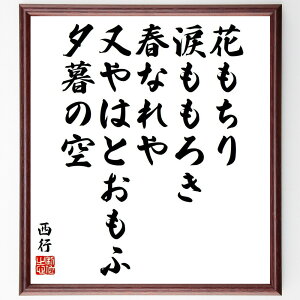 花もちり
涙ももろき
春なれや
又やはとおもふ
夕暮の空
西行